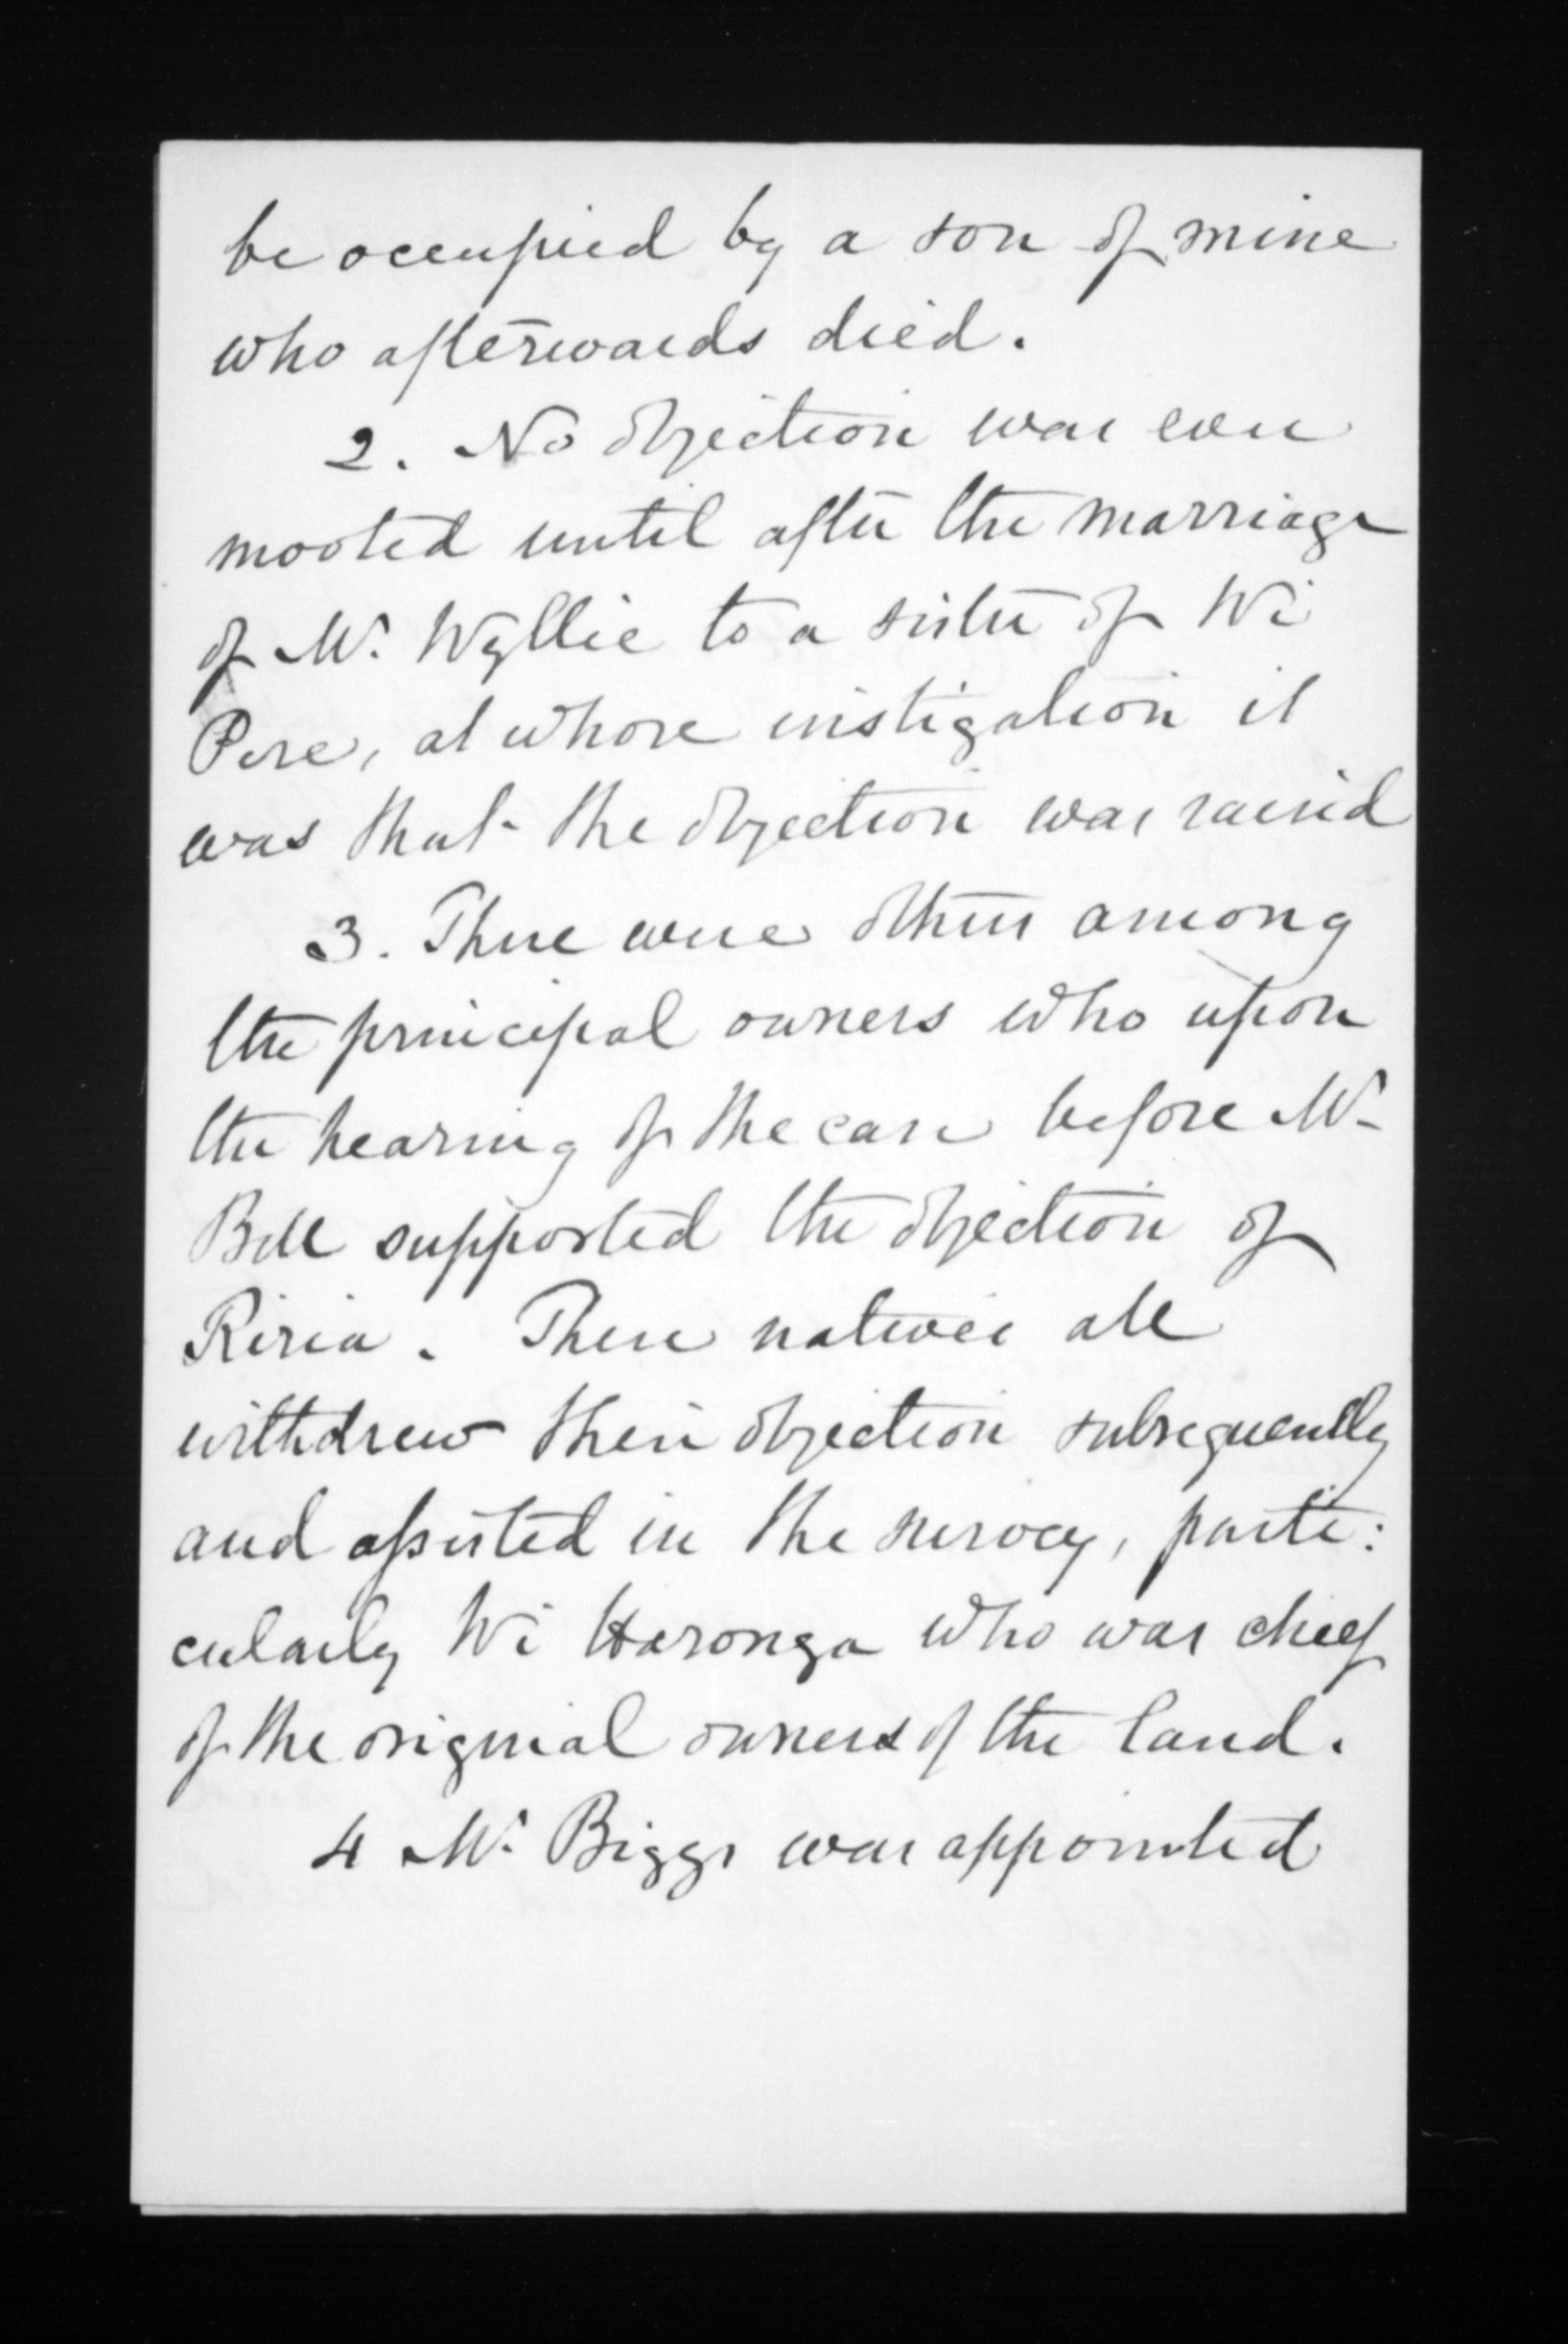 be occupied by a son of mine
who afterwards died.
2. No objection was even
mooted until after the marriage
of Mr. Wyllie to a sister of Wi
Pere, at whose instigation it
was that the objection was raised
3. There were others among
the principal owners who upon
the hearing of the case before Mr
Bell supported the objection of
Riria. These natives all
withdrew their objection subsequently
and assisted in the survey, parti:
cularly Wi Haronga who was chief
of the original owners of the land.
4 Mr. Biggs was appointed